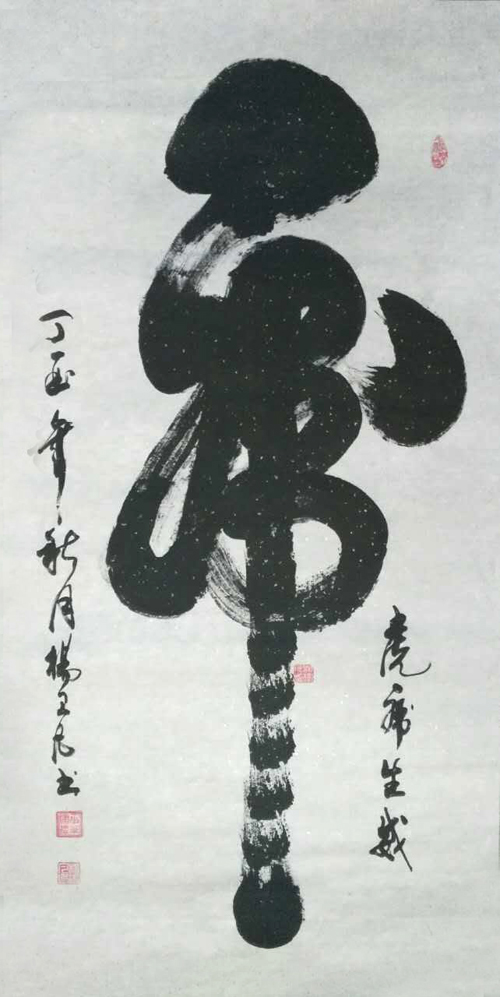 虎
虎虎生威
丁酉年秋月楊书